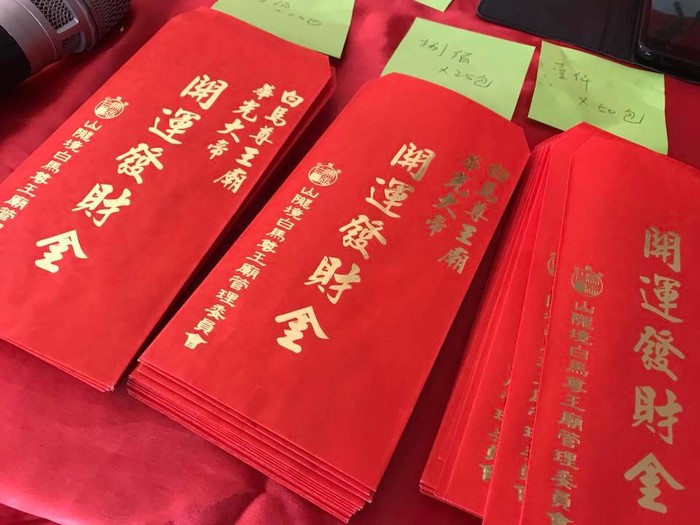 白馬尊王廟
華光大帝
開運發財金
山隴境白馬尊王廟管
捌佰
×25包
白馬尊王廟
華光大帝
開運發財金
山隴境白馬尊王廟管理委員會
壹仟
×50包
開運發財金
山隴境白馬尊王廟管理委員會